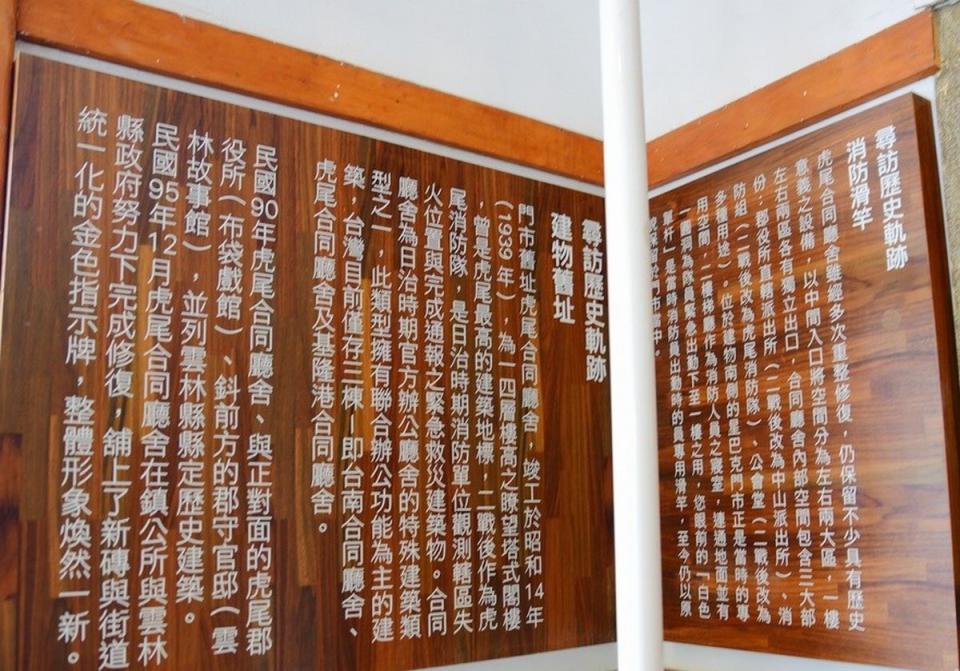 尋訪歷史軌跡
消防滑竿
虎尾合同廳舍雖經多次重整修復，仍保留不少具有歷史
意義之設備，以中間入口將空間分為左右兩大區，一樓
左右兩區各有獨立出口，合同廳舍內部空間包含三大部
份：郡役所直轄派出所（二戰後改為中山派出所）、消
防組（二戰後改為虎尾消防隊）、公會堂（二戰後改為
多種用途）。位於建物南側的星巴克門市正是當時的專
用空間，二樓梯廳作為消防人員之寢室，連通地面並有
一圓洞為隊員緊急出動下至一樓之用，您眼前的『白色
單杆』是當時消防員出動時的專用滑竿，至今仍以原
門市中。
尋訪歷史軌跡
建物舊址
門市舊址虎尾合同廳舍，竣工於昭和14年
（1939年），為一四層樓高之瞭望塔式閣樓
，曾是虎尾最高的建築地標，二戰後作為虎
尾消防隊，是日治時期消防單位觀測轄區失
火位置與完成通報之緊急救災建築物。合同
廳舍為日治時期官方辦公廳舍的特殊建築類
型之一，此類型擁有聯合辦公功能為主的建
築，台灣目前僅存三棟－即台南合同廳舍、
虎尾合同廳舍及基隆港合同廳舍。
民國90年虎尾合同廳舍、與正對面的虎尾郡
役所（布袋戲館）、斜前方的郡守官邸（雲
林故事館），並列雲林縣縣定歷史建築。
民國95年12月虎尾合同廳舍在鎮公所與雲林
縣政府努力下完成修復，舖上了新磚與街道
統一化的金色指示牌，整體形象煥然一新。